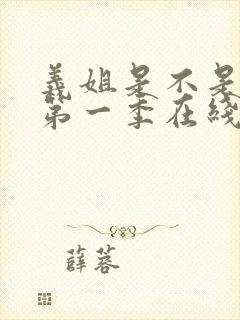 義姐是不是
第一季在綫
薛蓉